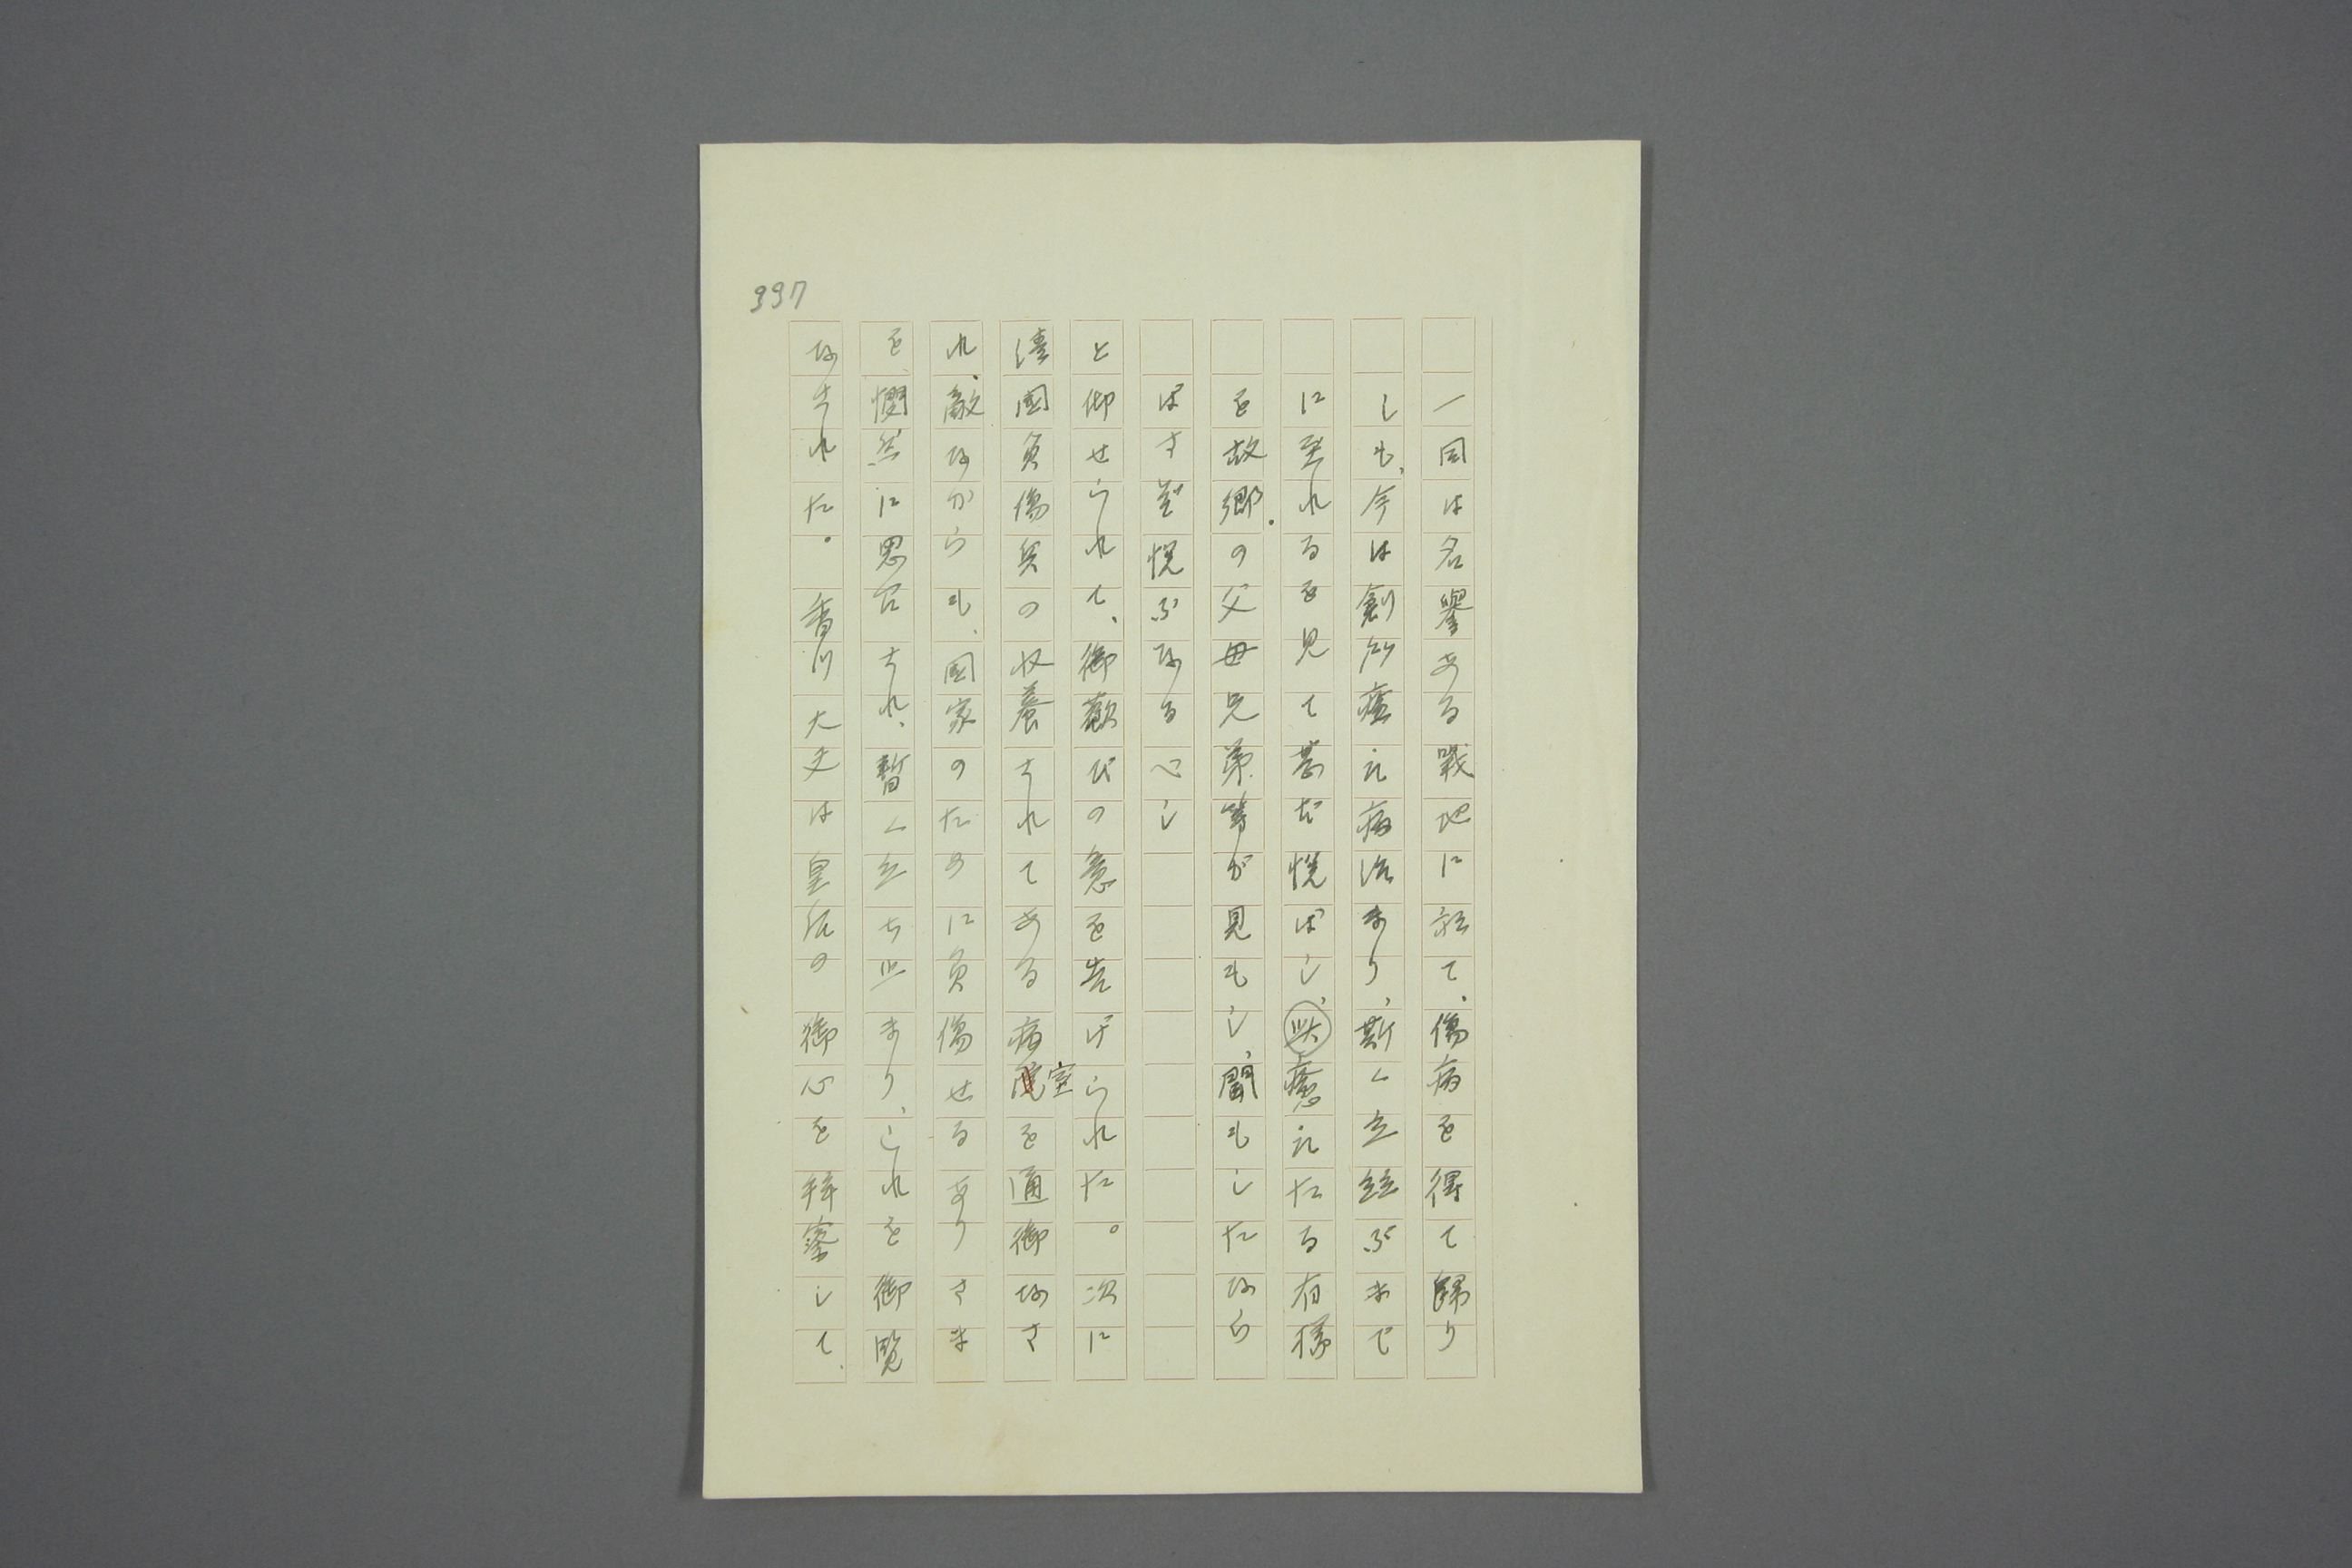 997
一同は名譽ある戰地に於て、傷病を得て歸り
しも、今は創所癒え病治まり、斯く立並ぶまで
に至れるを見て甚だ悦ばし、癒えたる有様
を故郷の父母兄弟等が見もし、聞もしたなら
ばさぞ悦ぶなるべし
と仰せられて、御歡びの意を告げられた。次に
清国負傷兵の收養されてある病室を通御なさ
れ、敵ながらも、国家のために負傷せるありさま
を憫然に思召され、暫く立ち止まり、これを御覧
なされた。香川大夫は皇后の御心を拝察して、